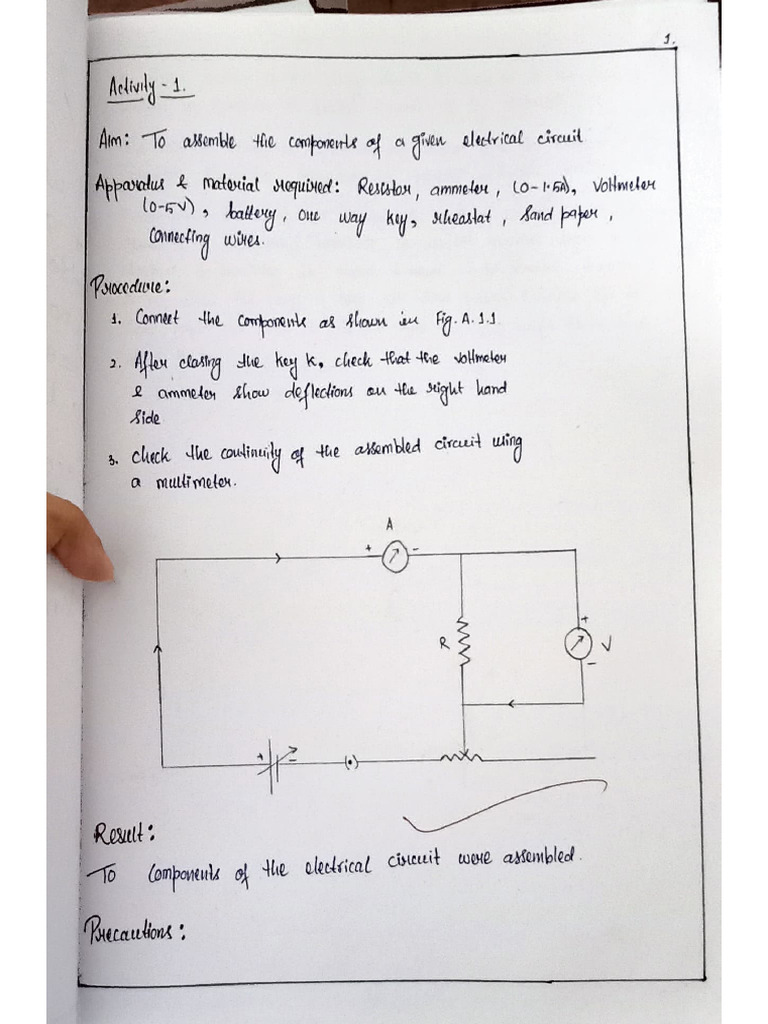 1.
Activity - 1.
Aim: To assemble the components of a given electrical circuit
Apparatus & material required: Resistor, ammeter, (0-1.5A), Voltmeter
(0-5V), battery, one way key, rheostat, Sand paper,
Connecting wires.
Procedure:
1. Connect the components as shown in Fig. A.1.1
2. After closing the key K, check that the voltmeter
& ammeter show deflections on the right hand
side
3. check the continuity of the assembled circuit using
a multimeter.
A
+ -
+
R V
-
+ -
Result:
To Components of the electrical circuit were assembled.
Precautions: